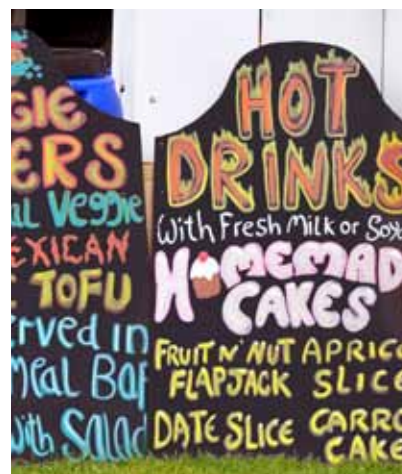 GIE
ERS
al Veggie
EXICAN
E TOFU
erved in
meal Bap
with Salad
HOT
DRINKS
With Fresh Milk or Soya
HOMEMAD
CAKES
FRUIT N' NUT
FLAPJACK
APRICO
SLICE
DATE SLICE
CARRO
CAKE